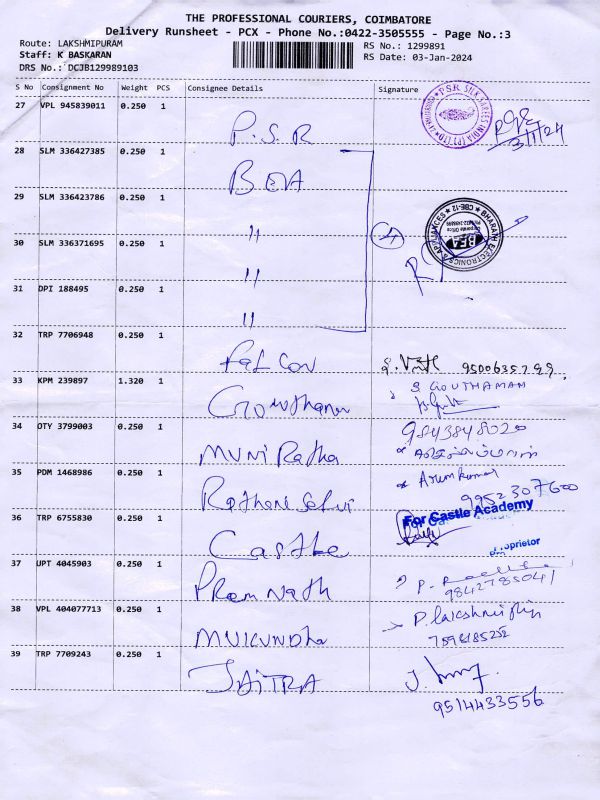 THE PROFESSIONAL COURIERS, COIMBATORE
Delivery Runsheet - PCX - Phone No.:0422-3505555 - Page No.:3
Route: LAKSHMIPURAM
RS No.: 1299891
Staff: K BASKARAN
RS Date: 03-Jan-2024
DRS No.: DCJB129989103
S No Consignment No Weight PCS Consignee Details Signature
27 VPL 945839011 0.250 1 P.S.R
P.S.R SILK SAREES INDIA (P) LTD
3/1/24
28 SLM 336427385 0.250 1 BEA
29 SLM 336423786 0.250 1 "
4
BHARATH ELECTRONICS & APPLIANCES
Corporate Office
BEA
CBE-12
30 SLM 336371695 0.250 1 "
31 DPI 188495 0.250 1 "
32 TRP 7706948 0.250 1 Fal Con
33 KPM 239897 1.320 1 Gowthaman
S GOUTHAMAM
34 OTY 3799003 0.250 1 MUNI Ratha
9843848020
35 PDM 1468986 0.250 1
Arunkumar
9952307600
36 TRP 6755830 0.250 1 Castle
For Castle Academy
Proprietor
37 UPT 4045903 0.250 1 Prem Nath
9842785041
38 VPL 404077713 0.250 1 MUKUNDha
39 TRP 7709243 0.250 1 JAITRA
9514433556